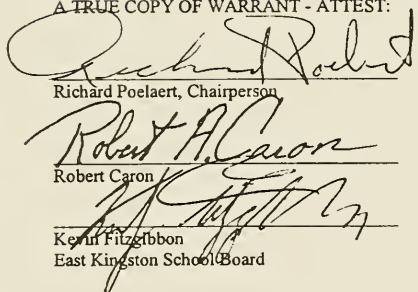 A TRUE COPY OF WARRANT - ATTEST:
Richard Poelaert
Richard Poelaert, Chairperson
Robert A. Caron
Robert Caron
Kevin Fitzgibbon
East Kingston School Board